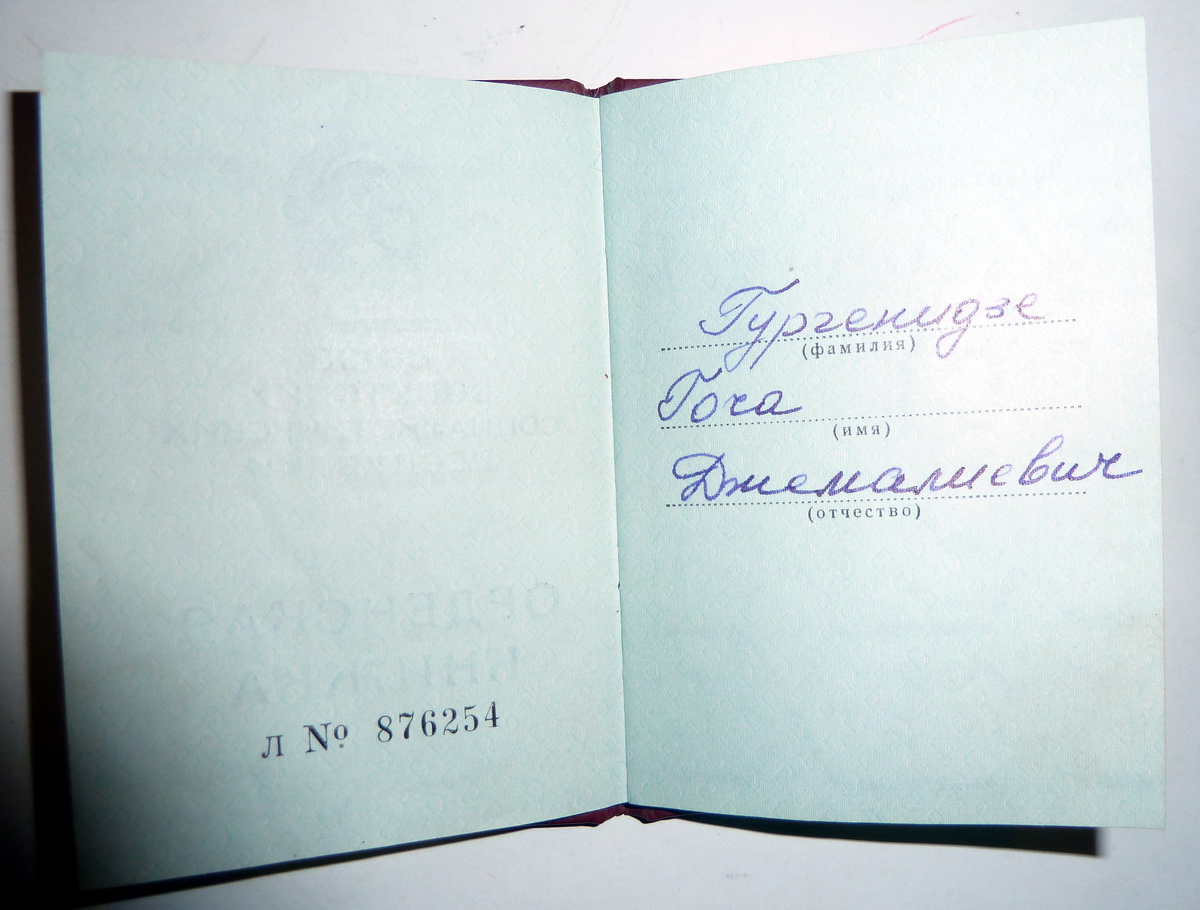 л № 876254
Гургенидзе
(фамилия)
Гоча
(имя)
Джемалиевич
(отчество)
ОРДЕНСКАЯ
КНИЖКА